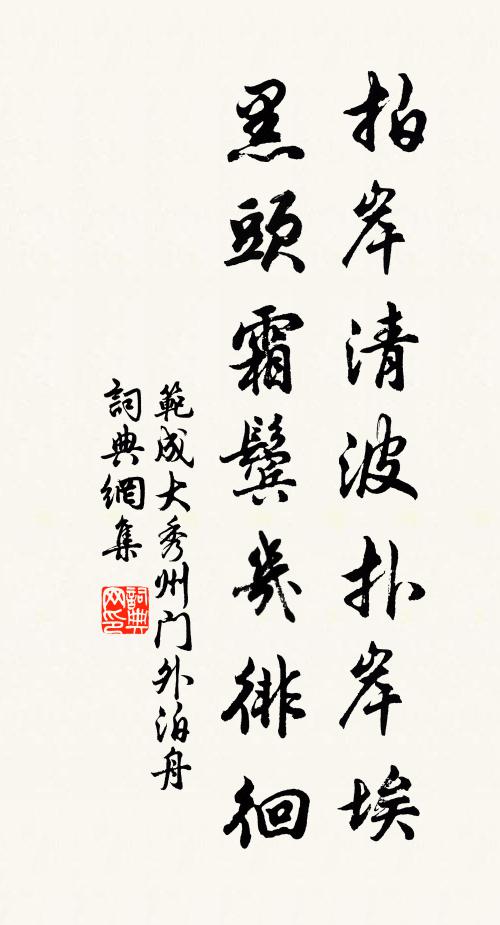 拍岸清波扑岸埃
黑頭霜鬢幾徘徊
範成大秀州门外泊舟
詞典網集
詞典网印